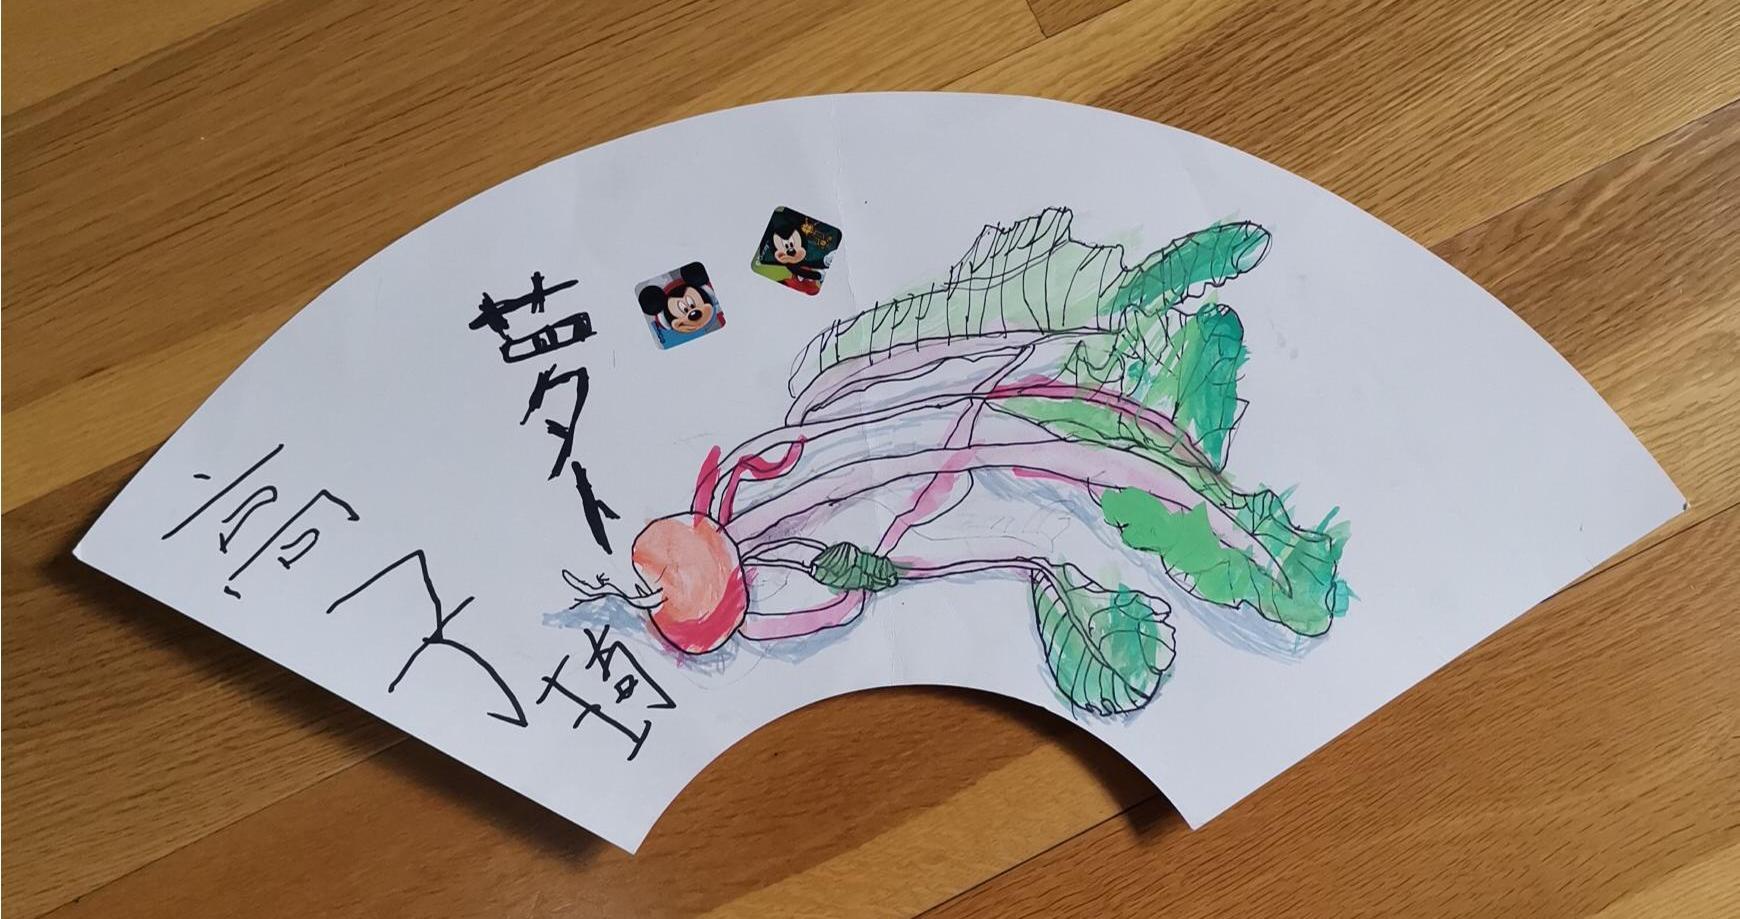 萝卜
高子琦